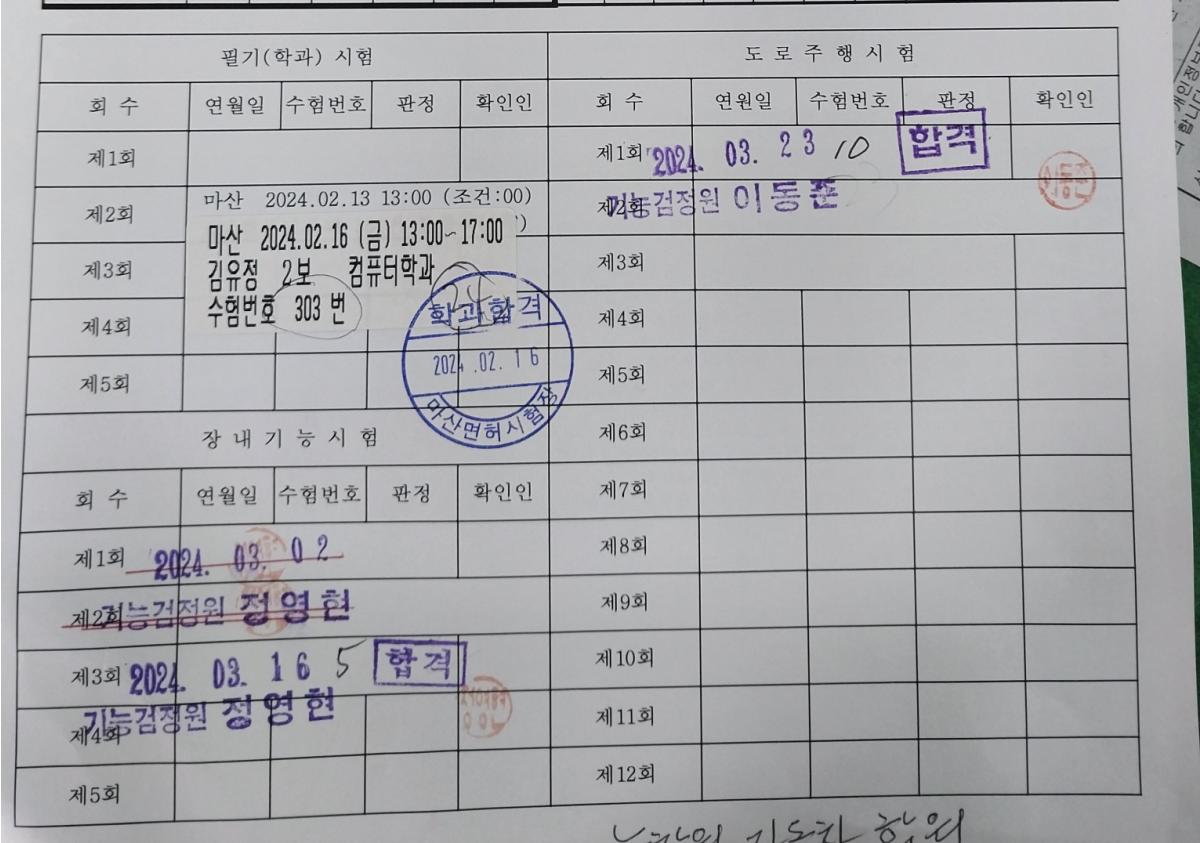 필기(학과) 시험
회 수 연월일 수험번호 판정 확인인
제1회
제2회 마산 2024.02.13 13:00 (조건:00)
마산 2024.02.16 (금) 13:00~17:00
제3회 김유정 2보 컴퓨터학과
수험번호 303 번
제4회
제5회
학과합격
2024.02.16
마산면허시험장
장내기능시험
회 수 연월일 수험번호 판정 확인인
제1회 2024. 03. 02
제2회 기능검정원 정영현
제3회 2024. 03. 16 5 합격
제4회 기능검정원 정영현
제5회
도로주행시험
회 수 연원일 수험번호 판정 확인인
제1회 2024. 03. 23 10 합격
제2회 기능검정원 이동준
이동준
제3회
제4회
제5회
제6회
제7회
제8회
제9회
제10회
제11회
제12회